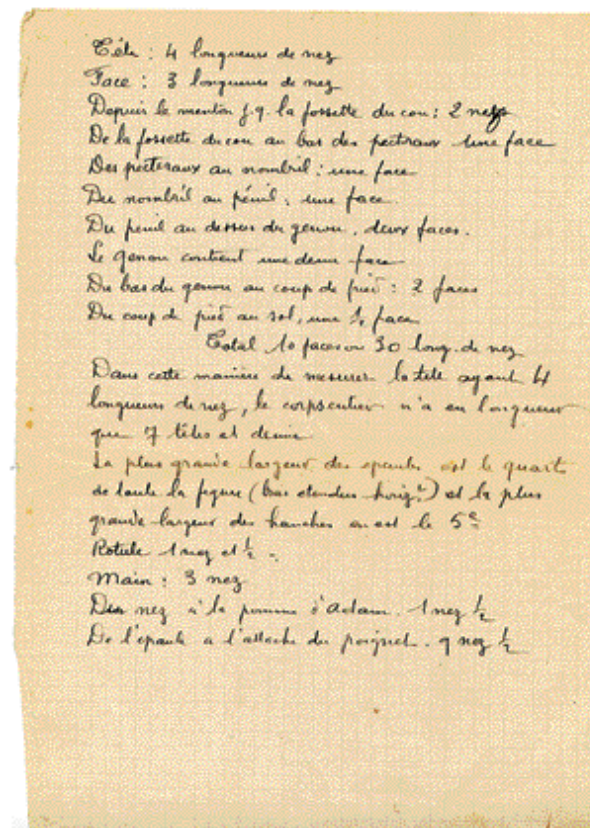 Tête : 4 longueurs de nez
Face : 3 longueurs de nez
Depuis le menton j.q. la fossette du cou : 2 nez
De la fossette du cou au bas des pectoraux une face
Des pectoraux au nombril : une face
Du nombril au pénil ; une face.
Du pénil au dessus du genou, deux faces.
Le genou contient une demie face
Du bas du genou au coup de pied : 2 faces
Du coup de pied au sol, une ½ face
Total 10 faces ou 30 long. de nez
Dans cette manière de mesurer la tête ayant 4
longueurs de nez, le corps entier n'a en longueur
que 7 têtes et demie
La plus grande largeur des epaules est le quart
de toute la figure (bras etendus horizt) et la plus
grande largeur des hanches en est le 5e
Rotule 1 nez et ½ .
Main : 3 nez
Du nez à la pomme d'Adam . 1 nez ½
De l'epaule a l'attache du poignet . 9 nez ½